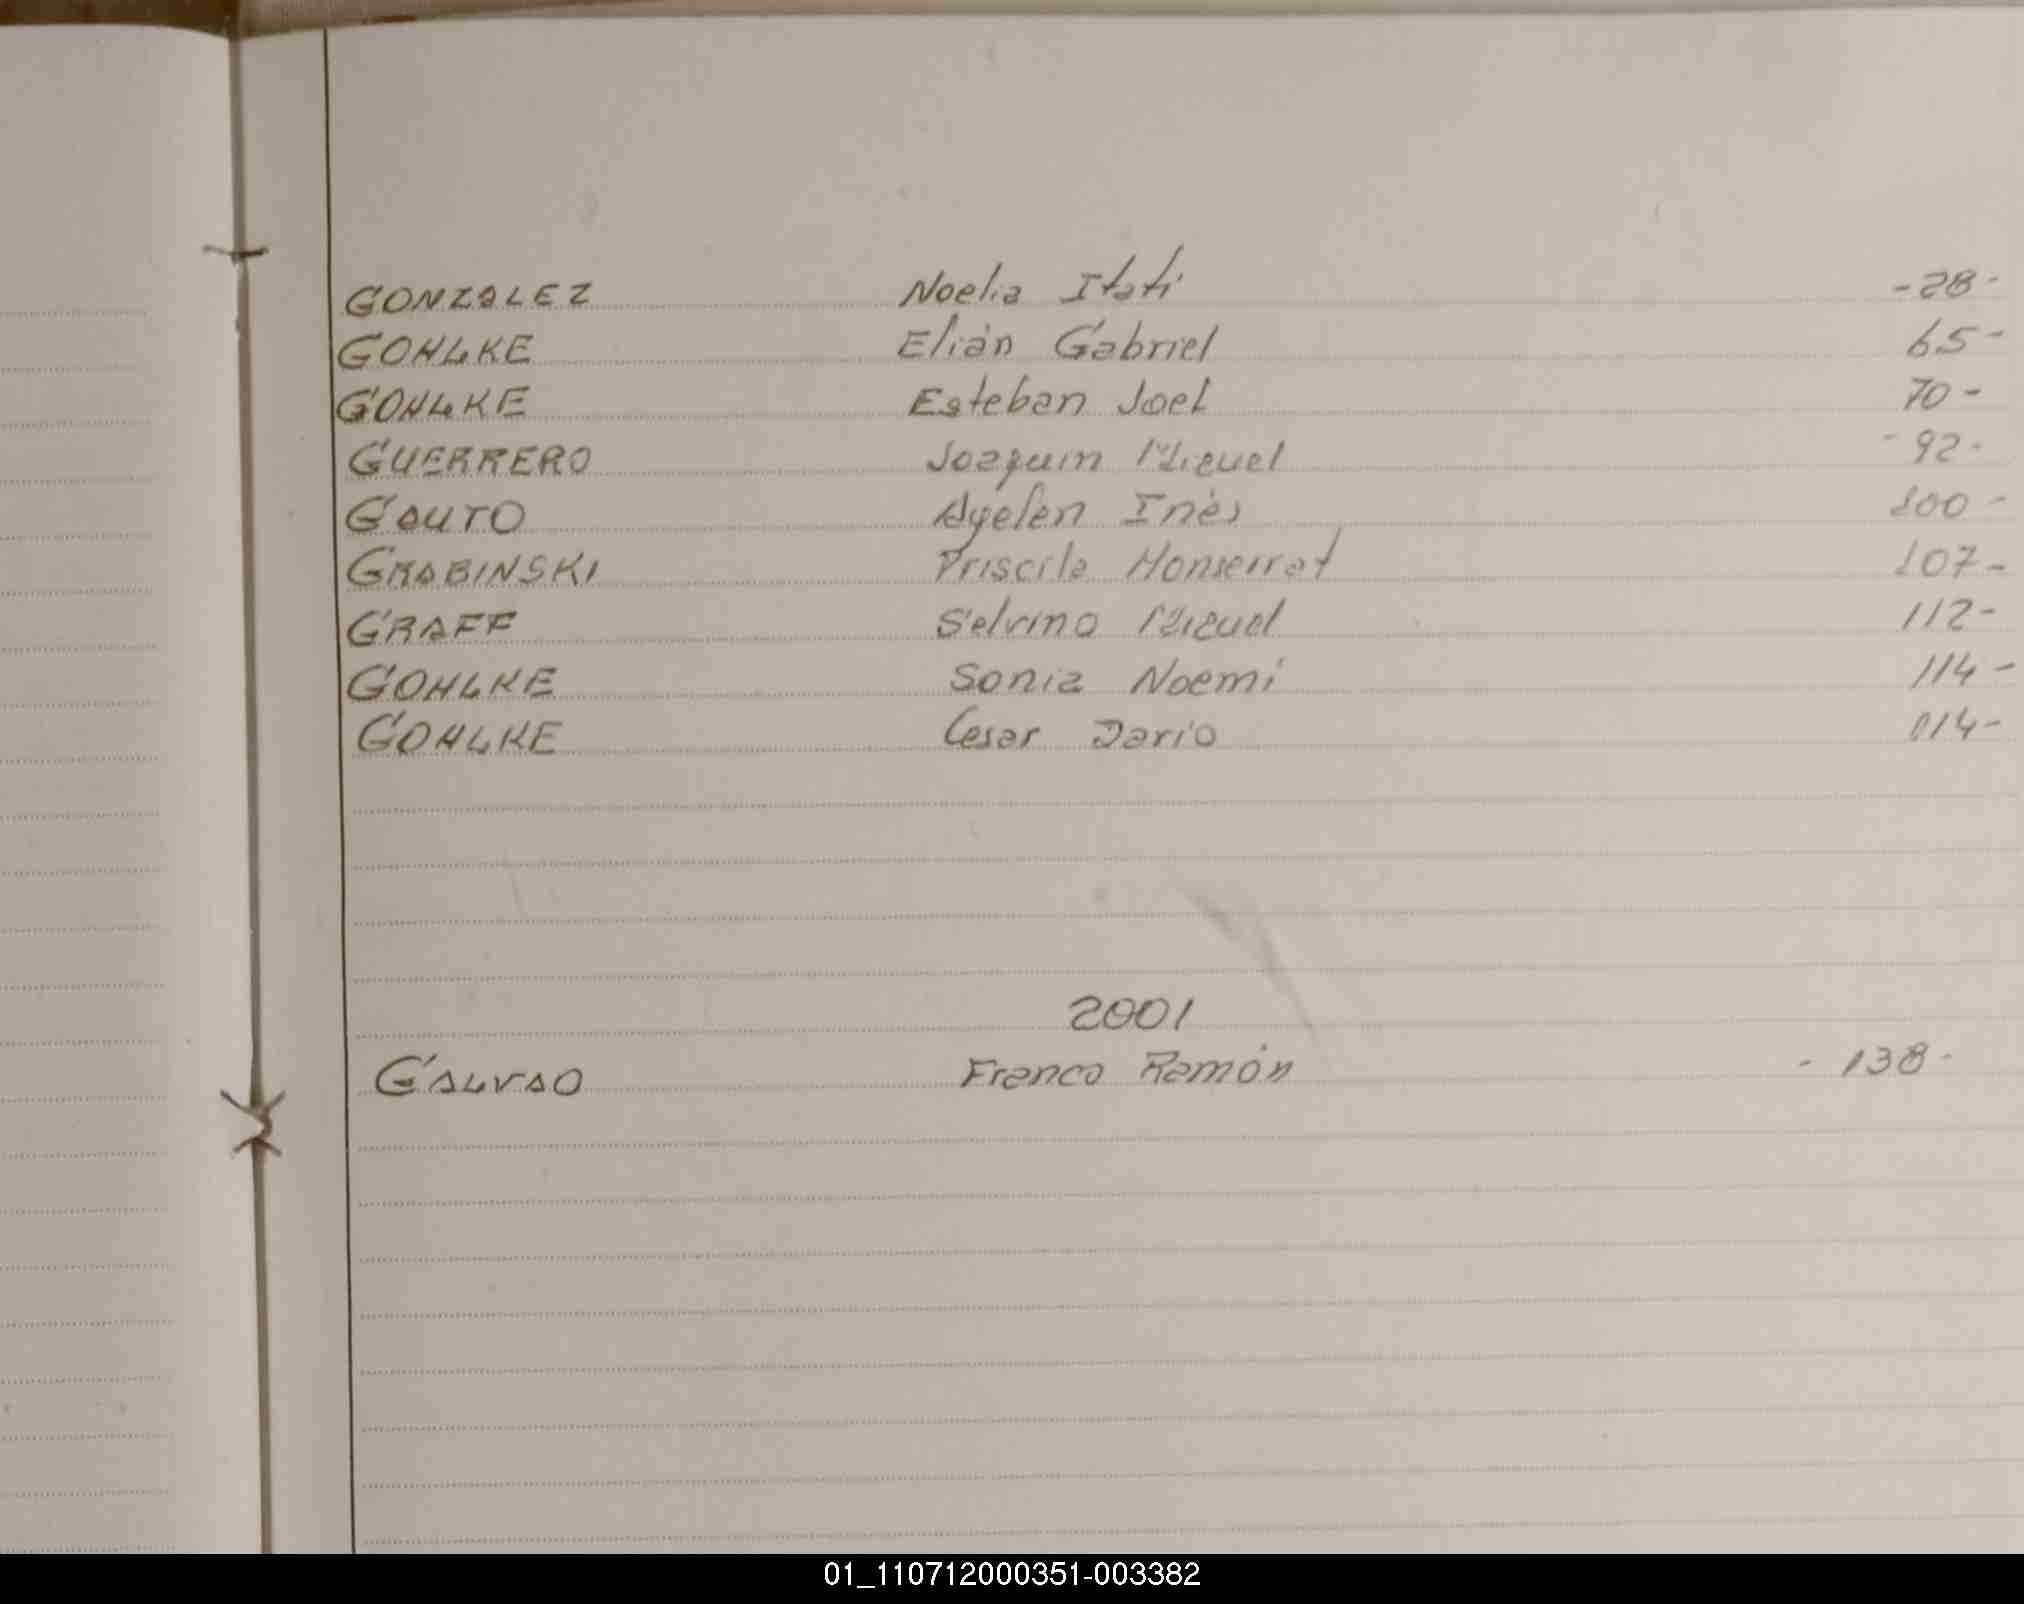 GONZALEZ Noelia Itati -28-
GOHLKE Elián Gabriel 65-
GOHLKE Esteban Joel 70-
GUERRERO Joaquin Miguel -92-
GAUTO Ayelen Inés 100-
GRABINSKI Priscila Monserrat 107-
GRAFF Selvino Miguel 112-
GOHLKE Sonia Noemi 114-
GOHLKE Cesar Dario 014-
2001
GALVAO Franco Ramón -138-
01_110712000351-003382